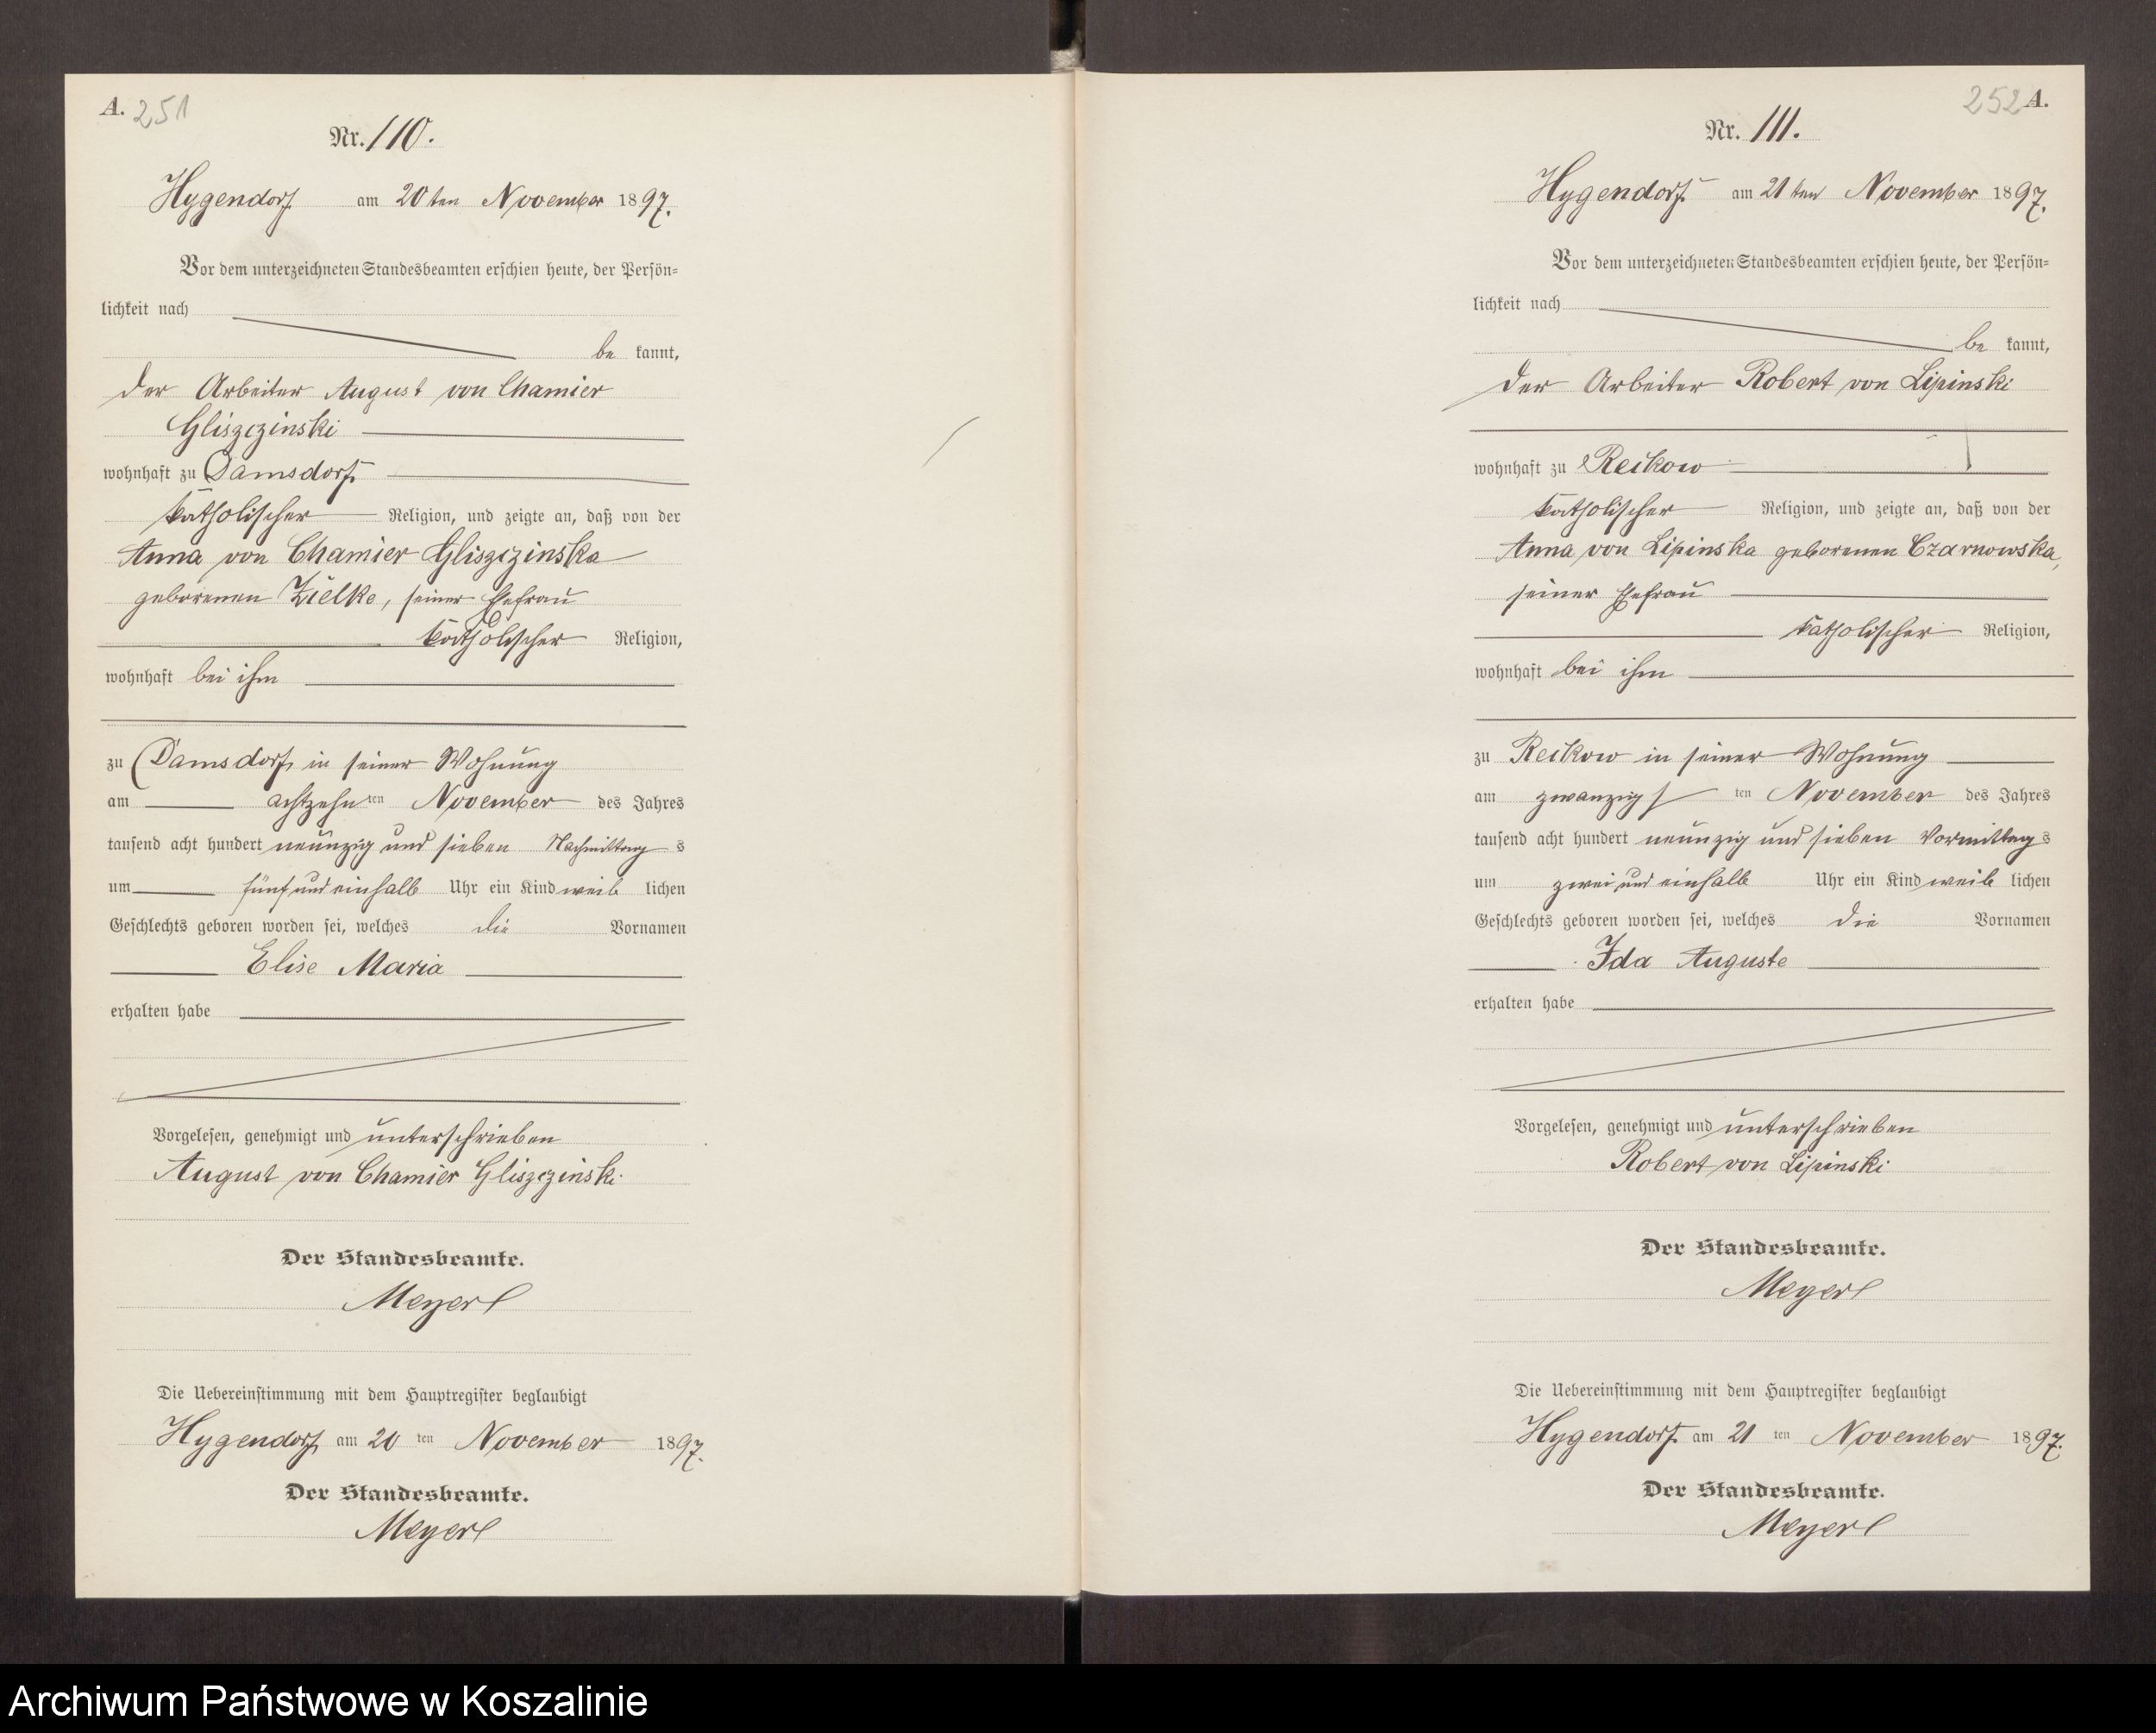 A. 251
Nr. 110.
Hygendorf am 20ten November 1897.
Vor dem unterzeichneten Standesbeamten erschien heute, der Persön-
lichkeit nach
be kannt,
der Arbeiter August von Chamier
Gliszczinski
wohnhaft zu Damsdorf
katholischer Religion, und zeigte an, daß von der
Anna von Chamier Gliszczinska
geborenen Zielke, seiner Ehefrau
katholischer Religion,
wohnhaft bei ihm
zu Damsdorf, in seiner Wohnung
am achtzehn ten November des Jahres
tausend acht hundert neunzig und sieben Nachmittag s
um fünf und einhalb Uhr ein Kind weib lichen
Geschlechts geboren worden sei, welches die Vornamen
Elise Maria
erhalten habe
Vorgelesen, genehmigt und unterschrieben
August von Chamier Gliszczinski
Der Standesbeamte.
Meyerl
Die Uebereinstimmung mit dem Hauptregister beglaubigt
Hygendorf, am 20 ten November 1897.
Der Standesbeamte.
Meyerl
252 A.
Nr. 111.
Hygendorf am 21ten November 1897.
Vor dem unterzeichneten Standesbeamten erschien heute, der Persön-
lichkeit nach
be kannt,
der Arbeiter Robert von Lipinski
wohnhaft zu Reikow
katholischer Religion, und zeigte an, daß von der
Anna von Lipinska geborenen Czarnowska,
seiner Ehefrau
katholischer Religion,
wohnhaft bei ihm
zu Reikow in seiner Wohnung
am zwanzigs ten November des Jahres
tausend acht hundert neunzig und sieben Vormittag s
um zwei und einhalb Uhr ein Kind weib lichen
Geschlechts geboren worden sei, welches die Vornamen
Ida Auguste
erhalten habe
Vorgelesen, genehmigt und unterschrieben
Robert von Lipinski
Der Standesbeamte.
Meyerl
Die Uebereinstimmung mit dem Hauptregister beglaubigt
Hygendorf am 21 ten November 1897.
Der Standesbeamte.
Meyerl
Archiwum Państwowe w Koszalinie